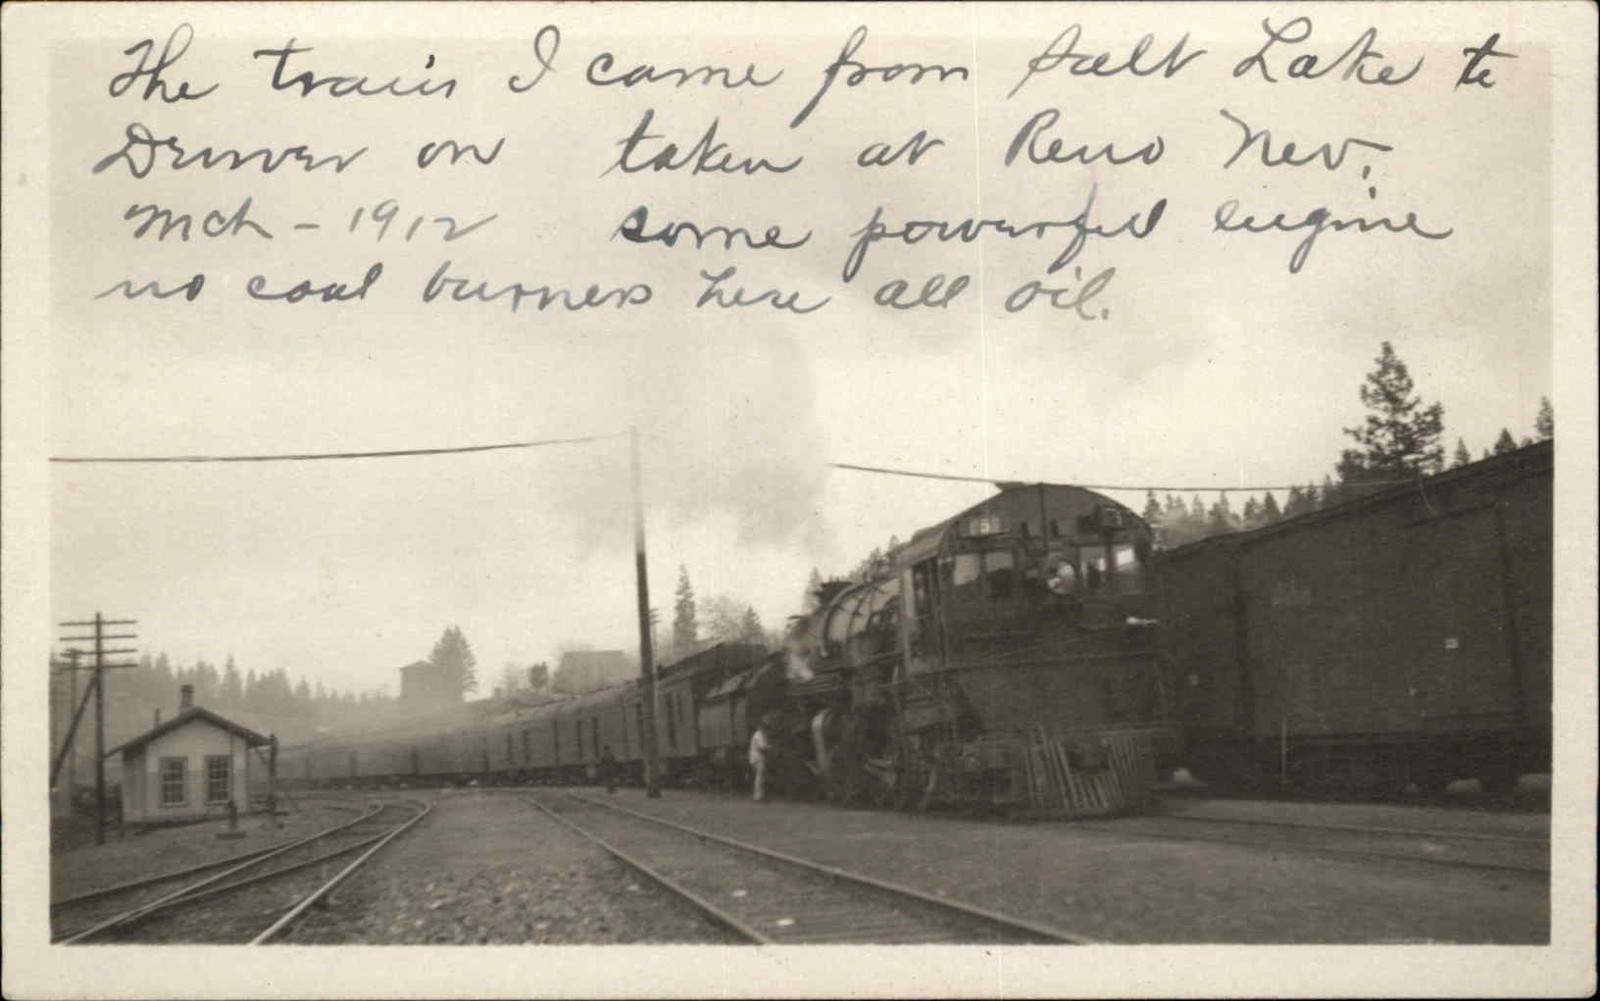 The train I came from Salt Lake to
Denver on taken at Reno Nev.
Mch - 1912 some powerful engine
no coal burners here all oil.